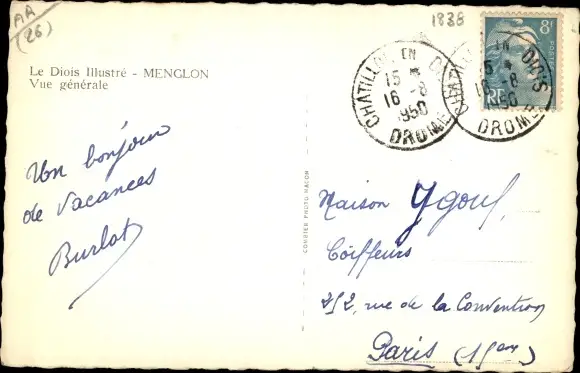 AR
(26)
1838
8F
POSTES
RF
Le Diois Illustré - MENGLON
Vue générale
CHATILLON EN DIOIS
15 *
16 -8
1950
DROME
EN DIOIS
15 *
16 -8
1950
DROME
Un bonjour
de vacances
Burlot
COMBIER PHOTO MACON
Maison Ygouf,
Coiffeurs
252, rue de la Convention
Paris (15eme)